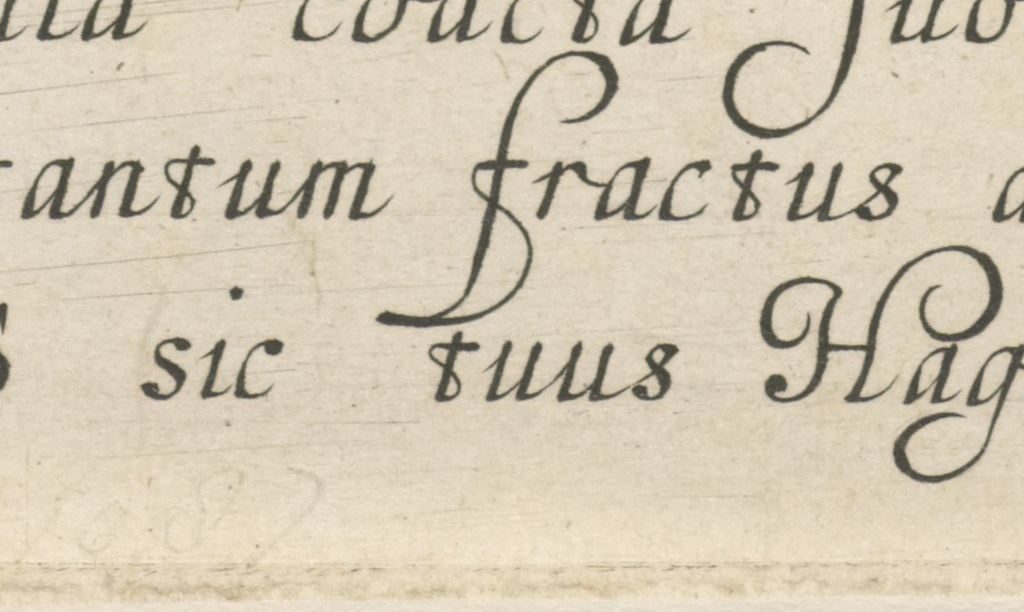 coacta
tantum fractus
sic tuus Hag